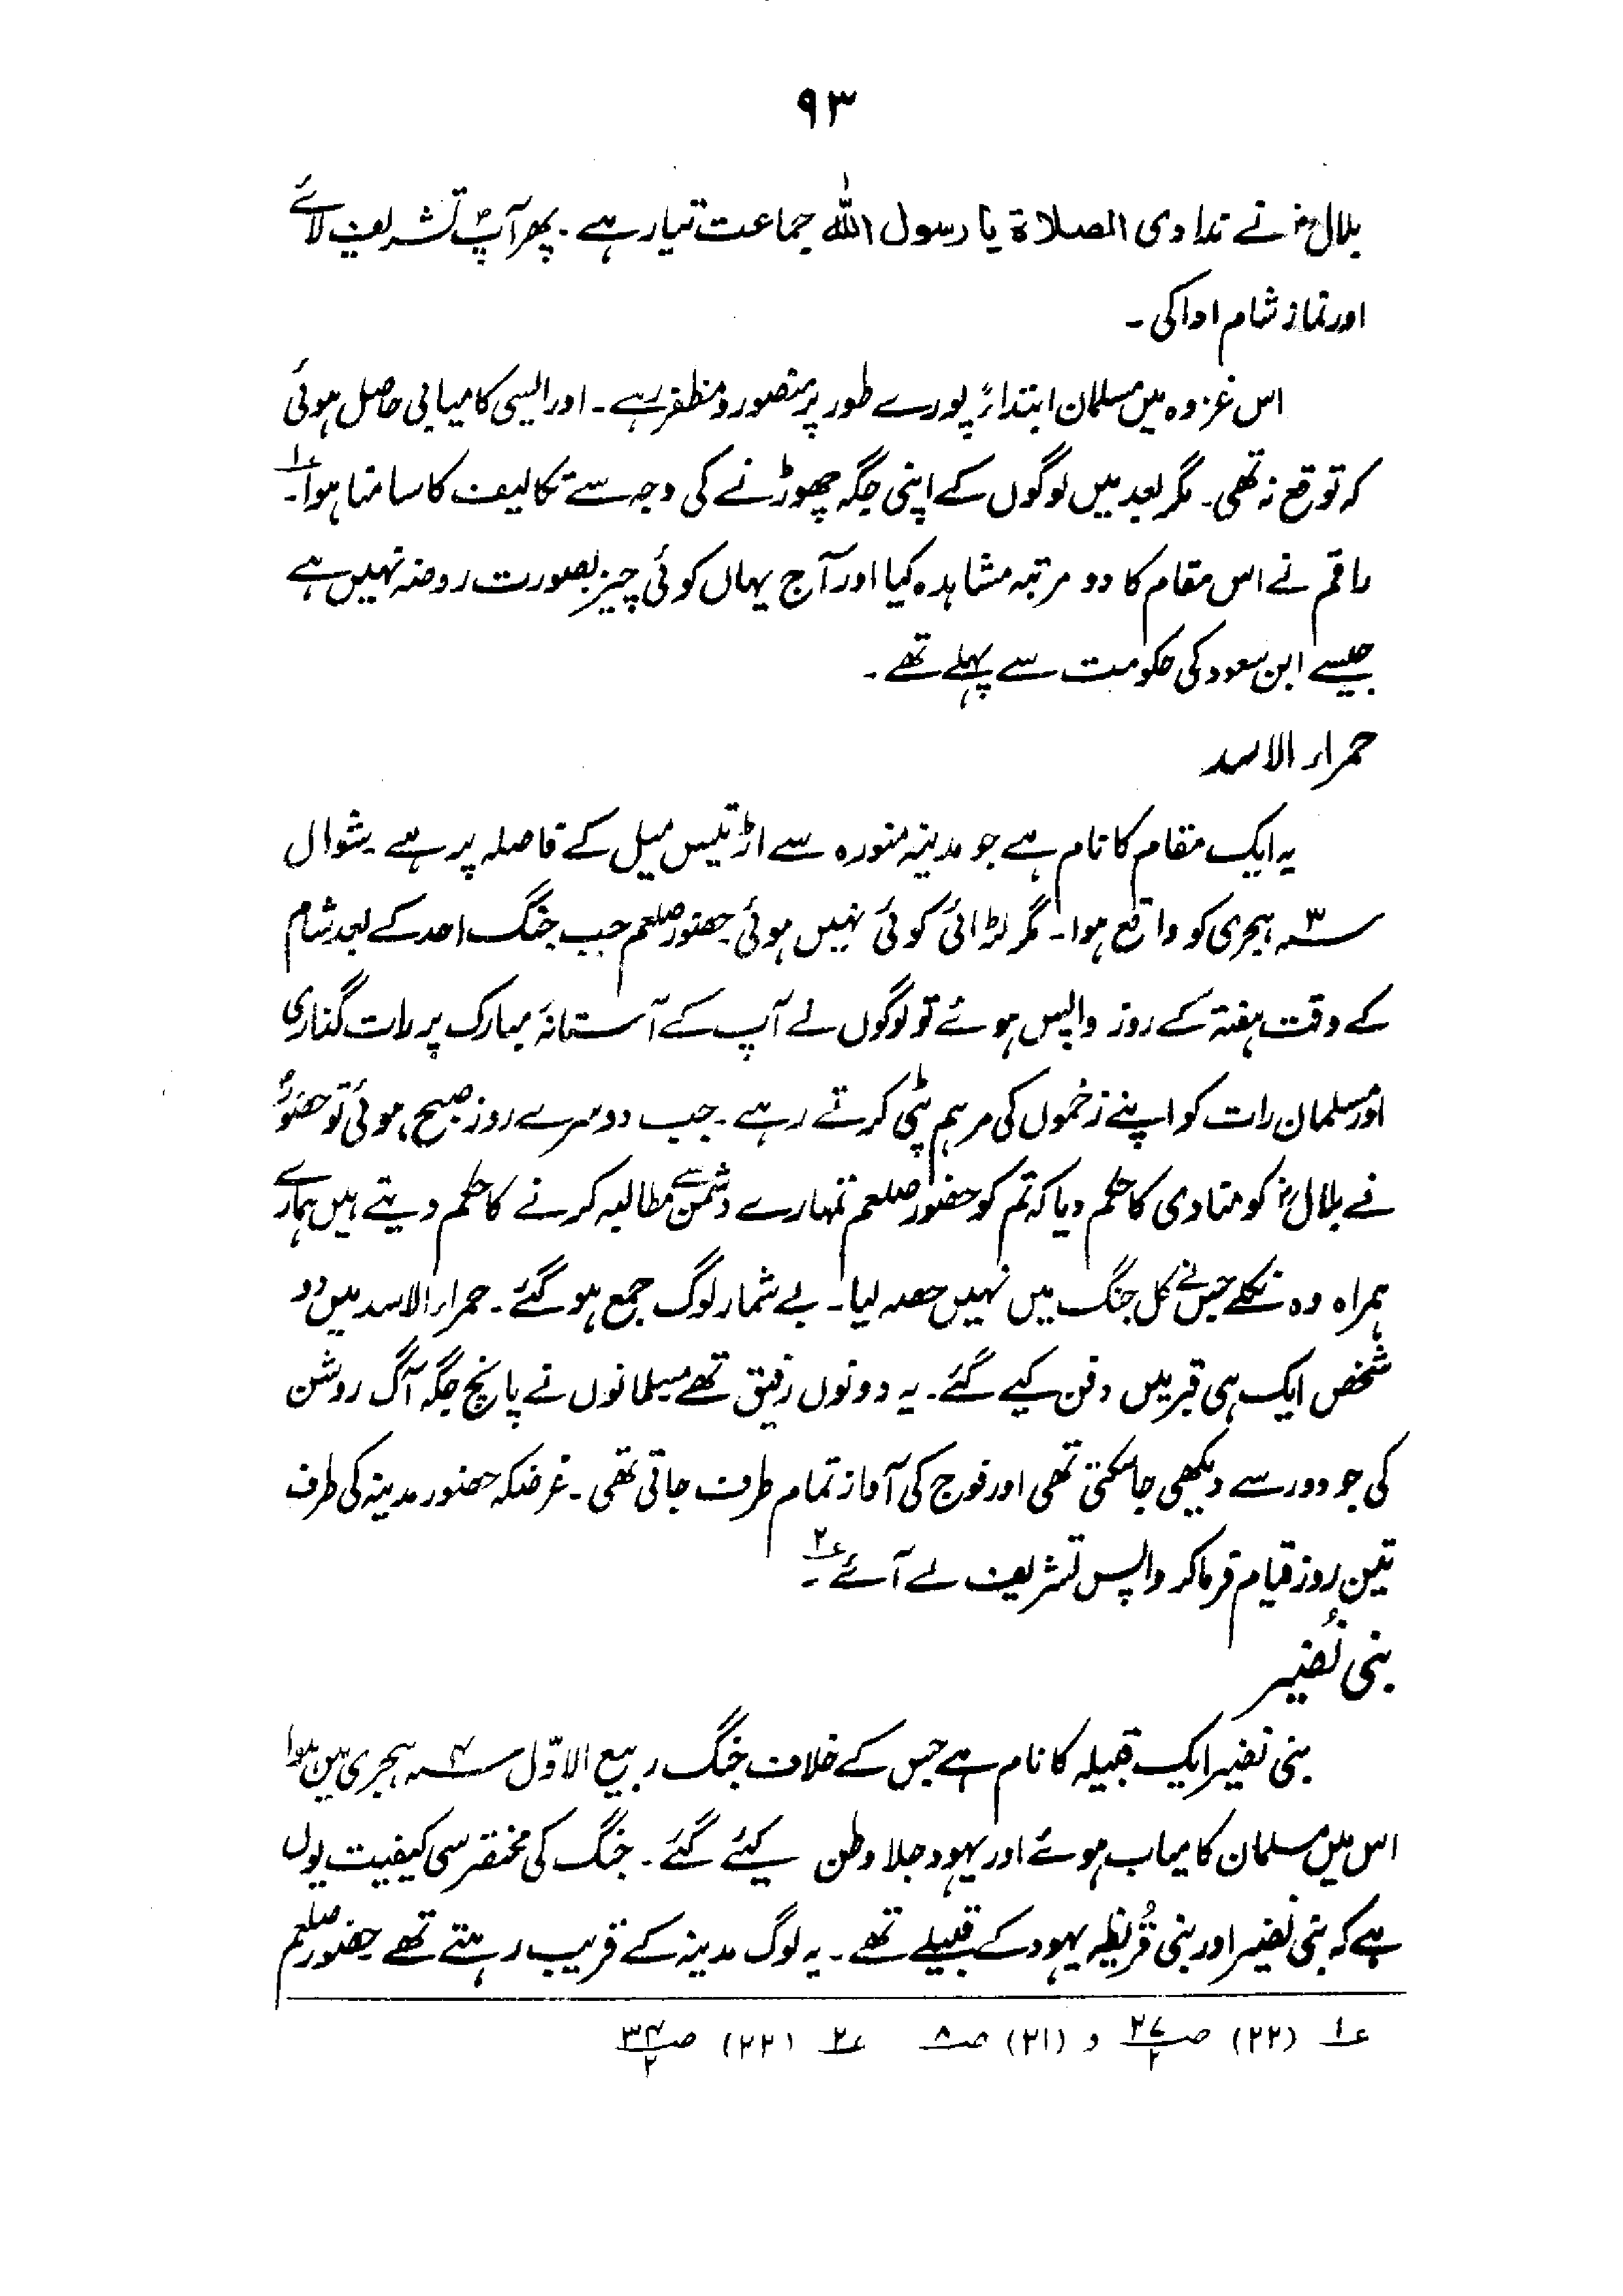 ۹۳
بلالؓ نے ندا دی الصلاۃ یا رسول اللہ جماعت تیار ہے ۔ پھر آپؐ تشریف لائے
اور نماز شام ادا کی ۔
اس غزوہ میں مسلمان ابتداءً پورے طور پر منصور و مظفر رہے ۔ اور ایسی کامیابی حاصل ہوئی
کہ توقع نہ تھی ۔ مگر بعد میں لوگوں کے اپنی جگہ چھوڑنے کی وجہ سے تکالیف کا سامنا ہوا ۔ ؏۱
راقم نے اس مقام کا دو مرتبہ مشاہدہ کیا اور آج یہاں کوئی چیز بصورت روضہ نہیں ہے
جیسے ابن سعود کی حکومت سے پہلے تھے ۔
حمراء الاسد
یہ ایک مقام کا نام ہے جو مدینہ منورہ سے اڑتیس میل کے فاصلہ پر ہے ۔ شوال
۳ سنہ ہجری کو واقع ہوا ۔ مگر لڑائی کوئی نہیں ہوئی حضور صلعم جب جنگ احد کے بعد شام
کے وقت ہفتہ کے روز واپس ہوئے تو لوگوں نے آپ کے آستانۂ مبارک پر رات گذاری
اور مسلمان رات کو اپنے زخموں کی مرہم پٹی کرتے رہے ۔ جب دوسرے روز صبح ہوئی تو حضورؐ
نے بلالؓ کو منادی کا حکم دیا کہ تم کو حضور صلعم تمہارے دشمن سے مطالبہ کرنے کا حکم دیتے ہیں ہمارے
ہمراہ وہ نکلے جس نے کل جنگ میں نہیں حصہ لیا ۔ بے شمار لوگ جمع ہو گئے ۔ حمراء الاسد میں دو
شخص ایک ہی قبر میں دفن کیے گئے ۔ یہ دونوں رفیق تھے مسلمانوں نے پانچ جگہ آگ روشن
کی جو دور سے دیکھی جا سکتی تھی اور فوج کی آواز تمام طرف جاتی تھی ۔ غرضکہ حضور مدینہ کی طرف
تین روز قیام فرما کر واپس تشریف لے آئے ۔ ؏۲
بنی نُضیر
بنی نضیر ایک قبیلہ کا نام ہے جس کے خلاف جنگ ربیع الاوّل ۴ سنہ ہجری میں ہوا
اس میں مسلمان کامیاب ہوئے اور یہود جلا وطن کیئے گئے ۔ جنگ کی مختصر سی کیفیت یوں
ہے کہ بنی نضیر اور بنی قُریظہ یہود کے قبیلے تھے ۔ یہ لوگ مدینہ کے قریب رہتے تھے حضور صلعم
؏۱ (۲۲) صـ ۲۷/۲ و (۲۱) صـ ۸ ؏۲ (۲۲) صـ ۳۴/۲